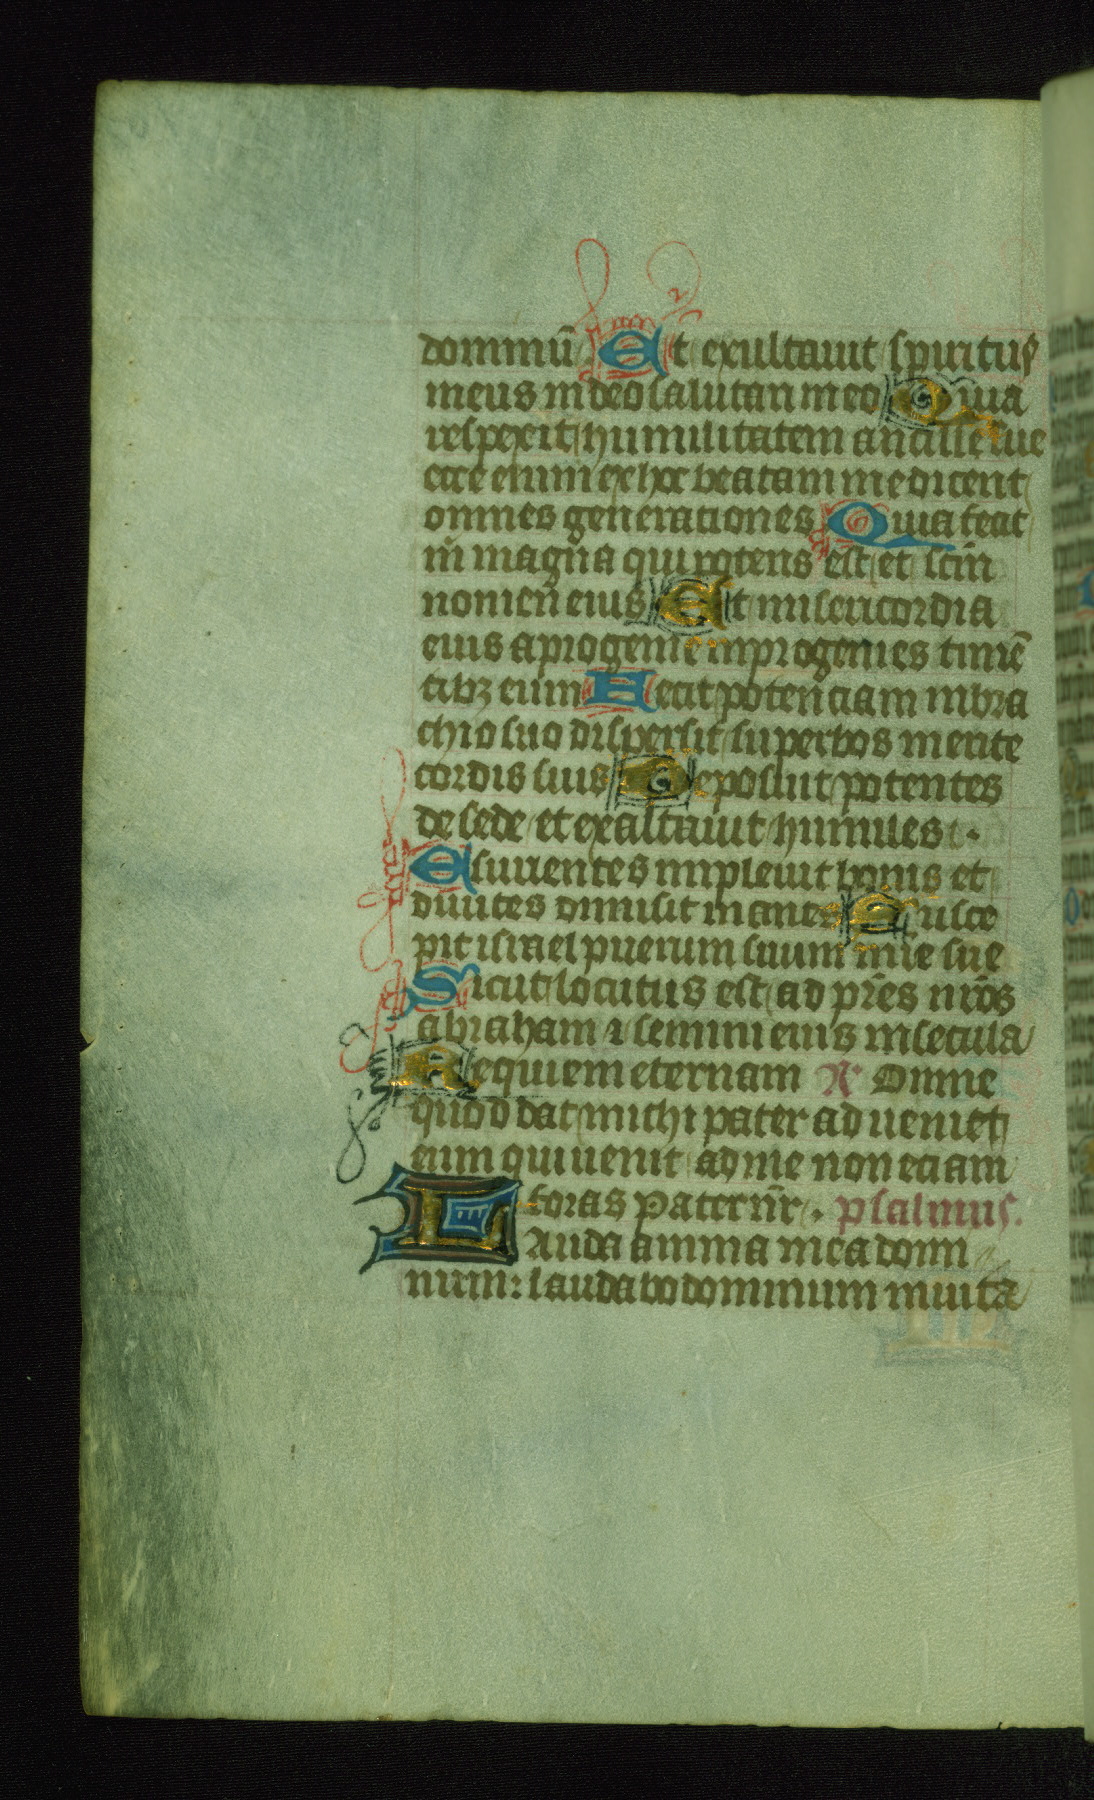 dominū Et exultauit spiritus
meus in deo salutari meo Quia
respexit humilitatem ancille sue
ecce enim ex hoc beatam me dicent
omnes generationes Quia fecit
m̄ magna qui potens est et scm̄
nomen eius Et misericordia
eius a progenie in progenies timē
tibꝫ eum Fecit potenciam in bra
chio suo dispersit superbos mente
cordis suis Deposuit potentes
de sede et exaltauit humiles
Esurientes impleuit bonis et
diuites dimisit inanes Susce
pit israel puerum suum mīe sue
Sicut locutus est ad pr̄es nr̄os
abraham ⁊ semini eius in secula
Requiem eternam A Omne
quod dat michi pater ad ueniet
eum qui uenit ad me non eciam
foras Pater nr̄ psalmus.
LAuda anima mea domi
num: laudabo dominum in uita